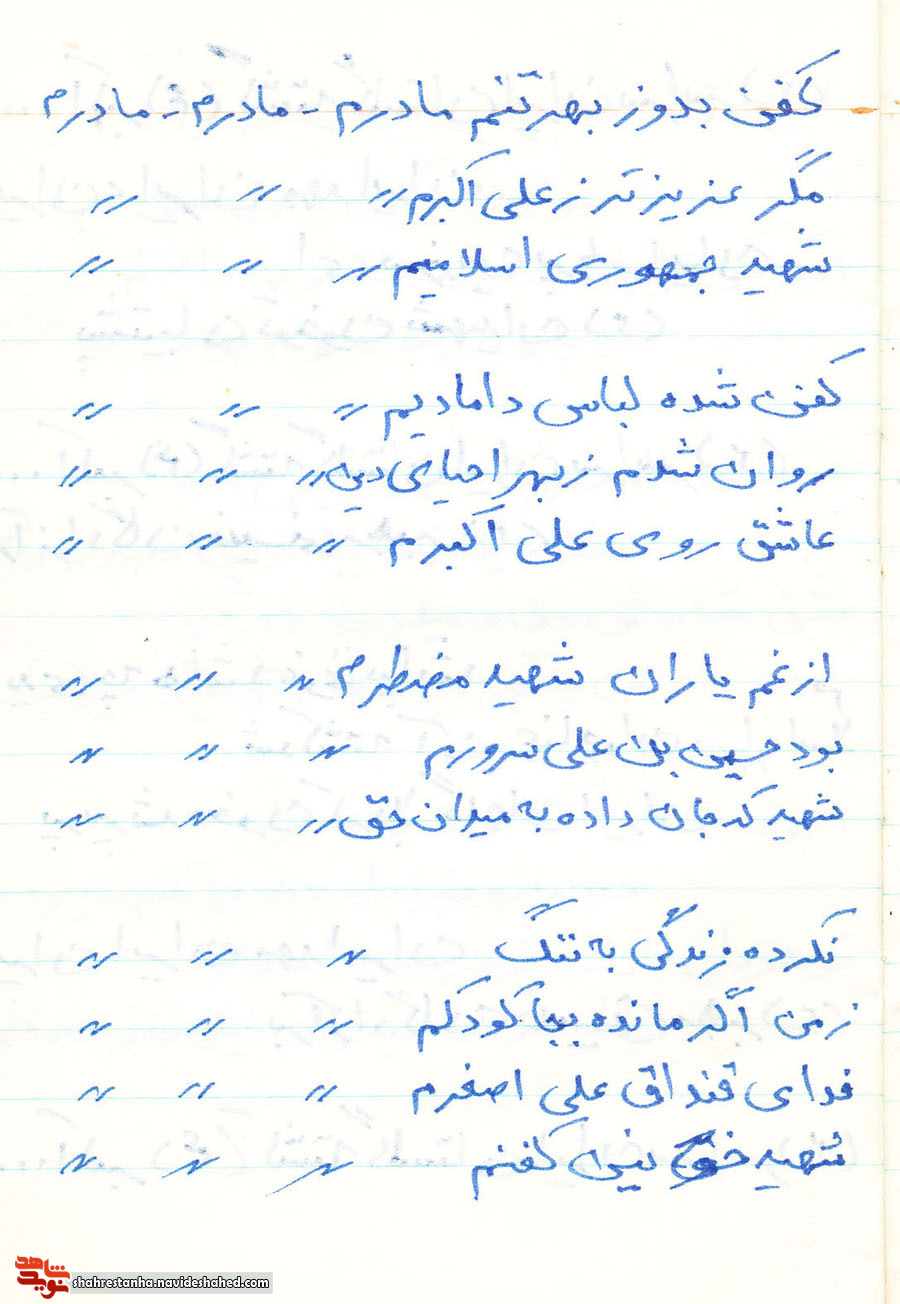 کفن بدوز بهر تنم مادرم - مادرم - مادرم
مگر عزیزتر ز علی اکبرم 〃 〃 〃
شهید جمهوری اسلامیم 〃 〃 〃
کفن شده لباس دامادیم 〃 〃 〃
روان شدم ز بهر احیای دین 〃 〃 〃
عاشق روی علی اکبرم 〃 〃 〃
از غم یاران شهید مضطرم 〃 〃 〃
بود حسین بن علی سرورم 〃 〃 〃
شهید که جان داده به میدان حق 〃 〃 〃
نکرده زندگی به ننگ 〃 〃 〃
ز من اگر مانده بجا کودکم 〃 〃 〃
فدای قنداق علی اصغرم 〃 〃 〃
شهید کفنم 〃 〃 〃
شاهد نوید
shahrestanha.navideshahed.com